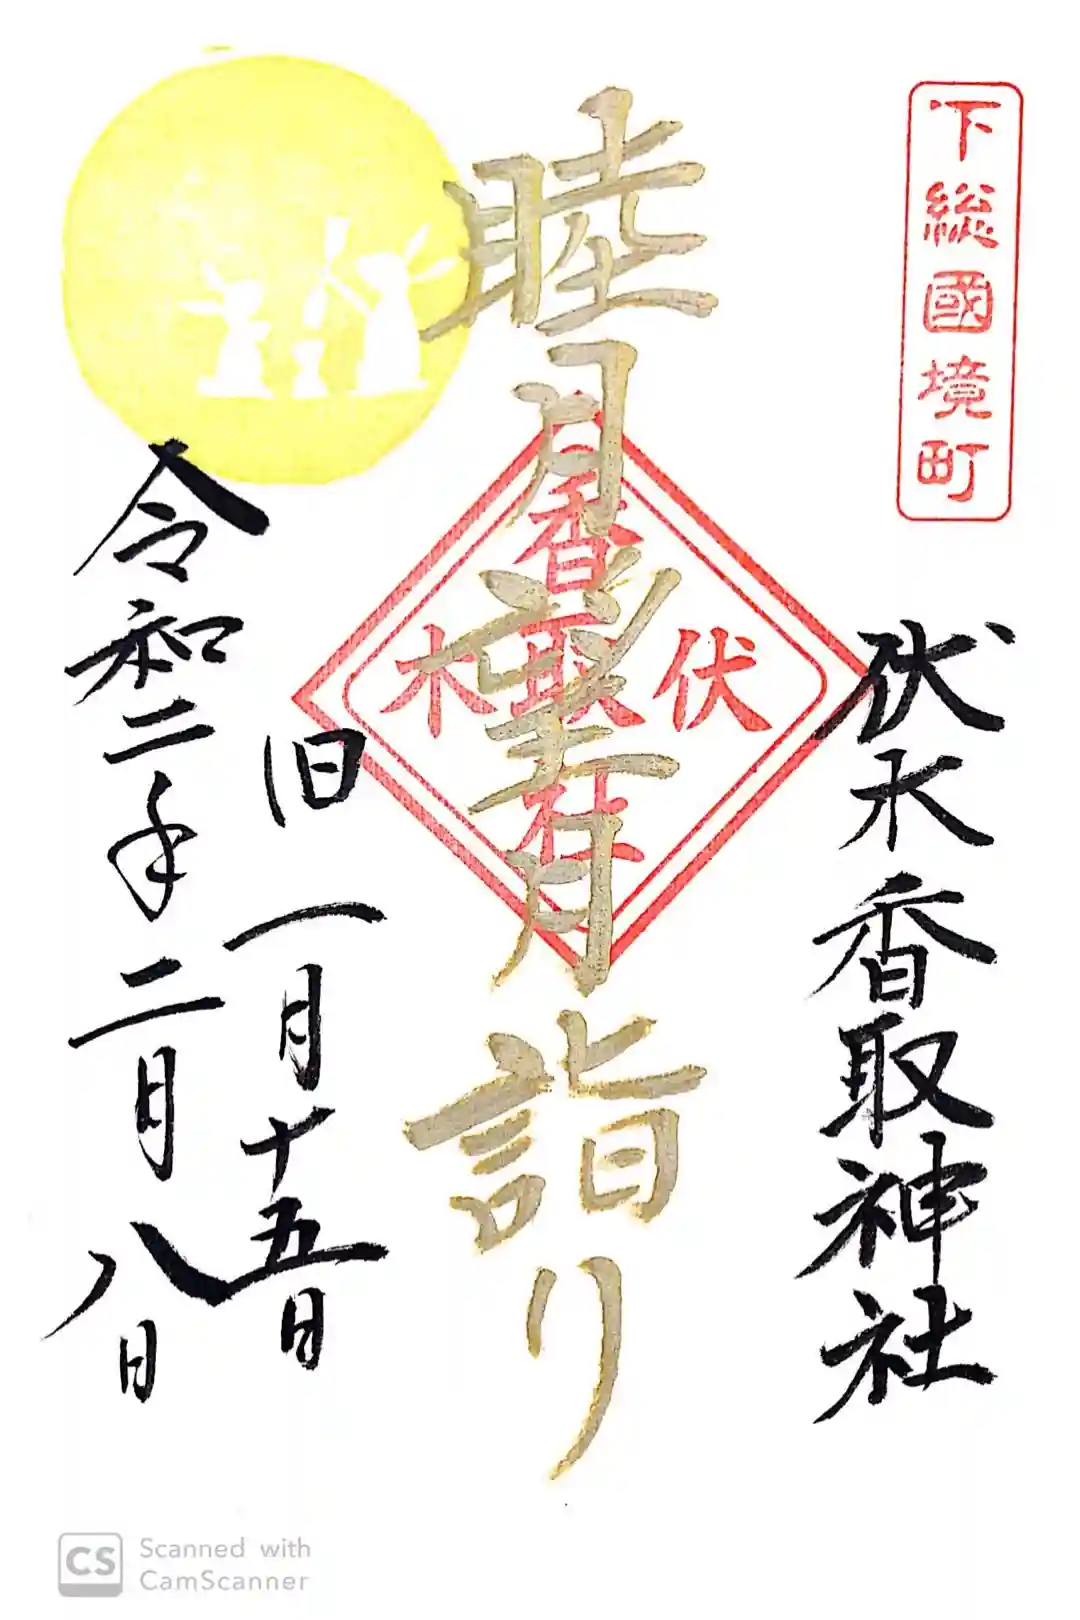 下総國境町
伏木香取神社
睦月望月詣り
香取社
伏木
旧一月十五日
令和二年二月八日
CS
Scanned with
CamScanner